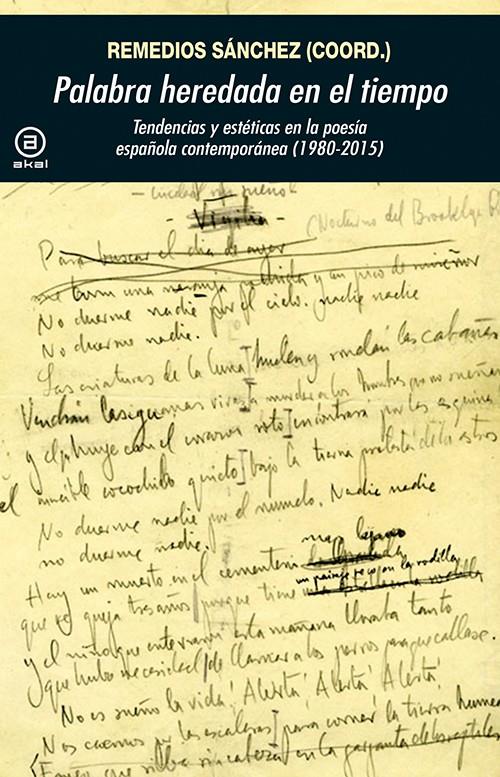 REMEDIOS SÁNCHEZ (COORD.)
Palabra heredada en el tiempo
Tendencias y estéticas en la poesía
española contemporánea (1980-2015)
akal
- ciudad sin sueño -
- Vigilia -
(Nocturno del Brooklyn
Para buscar el día de ayer
me una naranja y un pico de
No duerme nadie por el cielo. Nadie nadie
No duerme nadie.
Las criaturas de la luna huelen y rondan las cabañas
Vendrán las iguanas vivas a morder a los hombres que no sueñan
y el que huye con el corazón roto encontrará por las esquinas
el increíble cocodrilo quieto bajo la tierna protesta de los astros
No duerme nadie por el mundo. Nadie nadie
no duerme nadie.
más lejano
Hay un muerto en el cementerio
un paisaje seco en la rodilla
que se queja tres años porque tiene
y el niño que enterraron esta mañana lloraba tanto
que hubo necesidad de llamar a los perros para que callase.
No es sueño la vida! Alerta! Alerta! Alerta!
Nos caemos por las escaleras para comer la tierra húmeda
que silba sin cabeza en la garganta de los